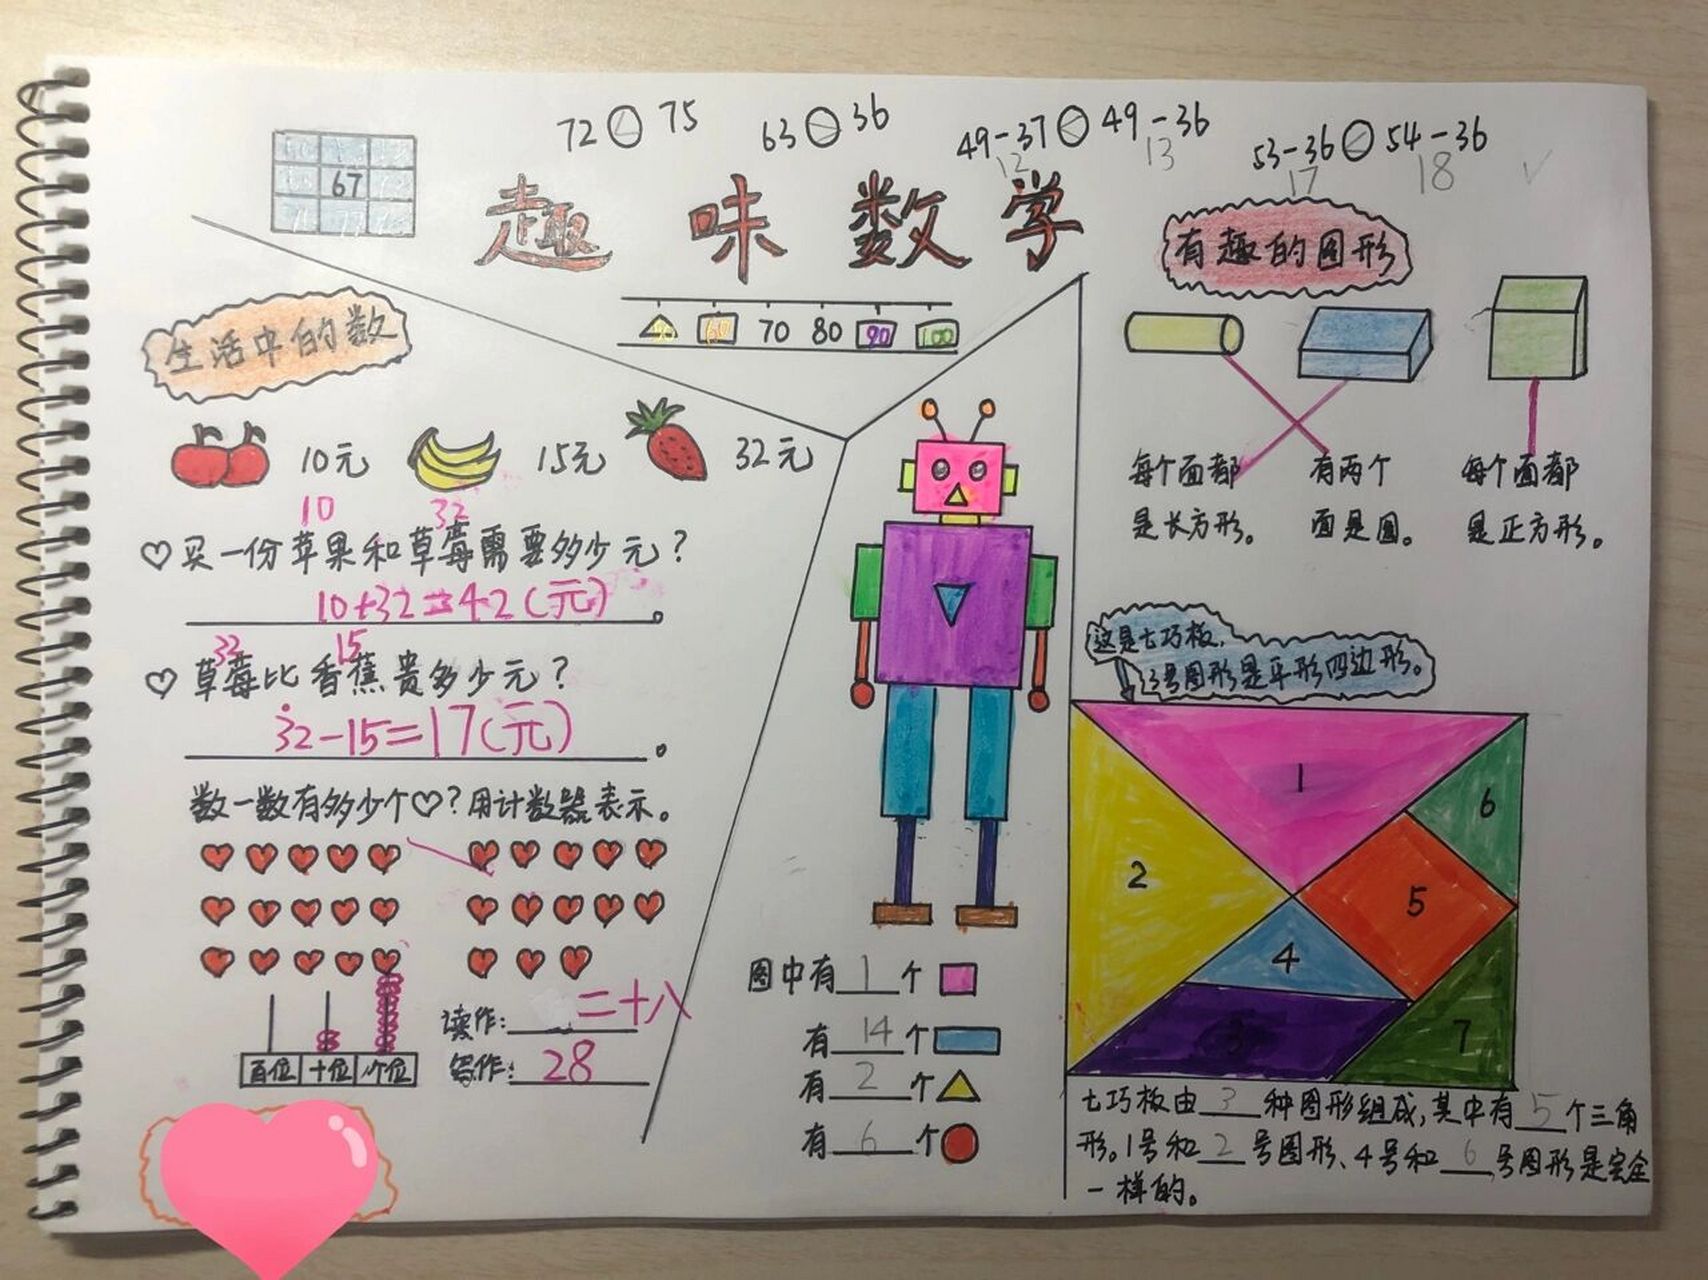 72<75
63>36
49-37<49-36
12
13
53-36<54-36
17
18
67
趣味数学
60 70 80 90 100
生活中的数
10元
15元
32元
10
32
买一份苹果和草莓需要多少元？
10+32=42(元)。
32
15
草莓比香蕉贵多少元？
32-15=17(元)。
数一数有多少个♡？用计数器表示。
百位 十位 个位
读作：二十八
写作：28
图中有1个
有14个
有2个
有6个
有趣的图形
每个面都
是长方形。
有两个
面是圆。
每个面都
是正方形。
这是七巧板，
3号图形是平形四边形。
1
2
3
4
5
6
7
七巧板由3种图形组成，其中有5个三角
形。1号和2号图形、4号和6号图形是完全
一样的。